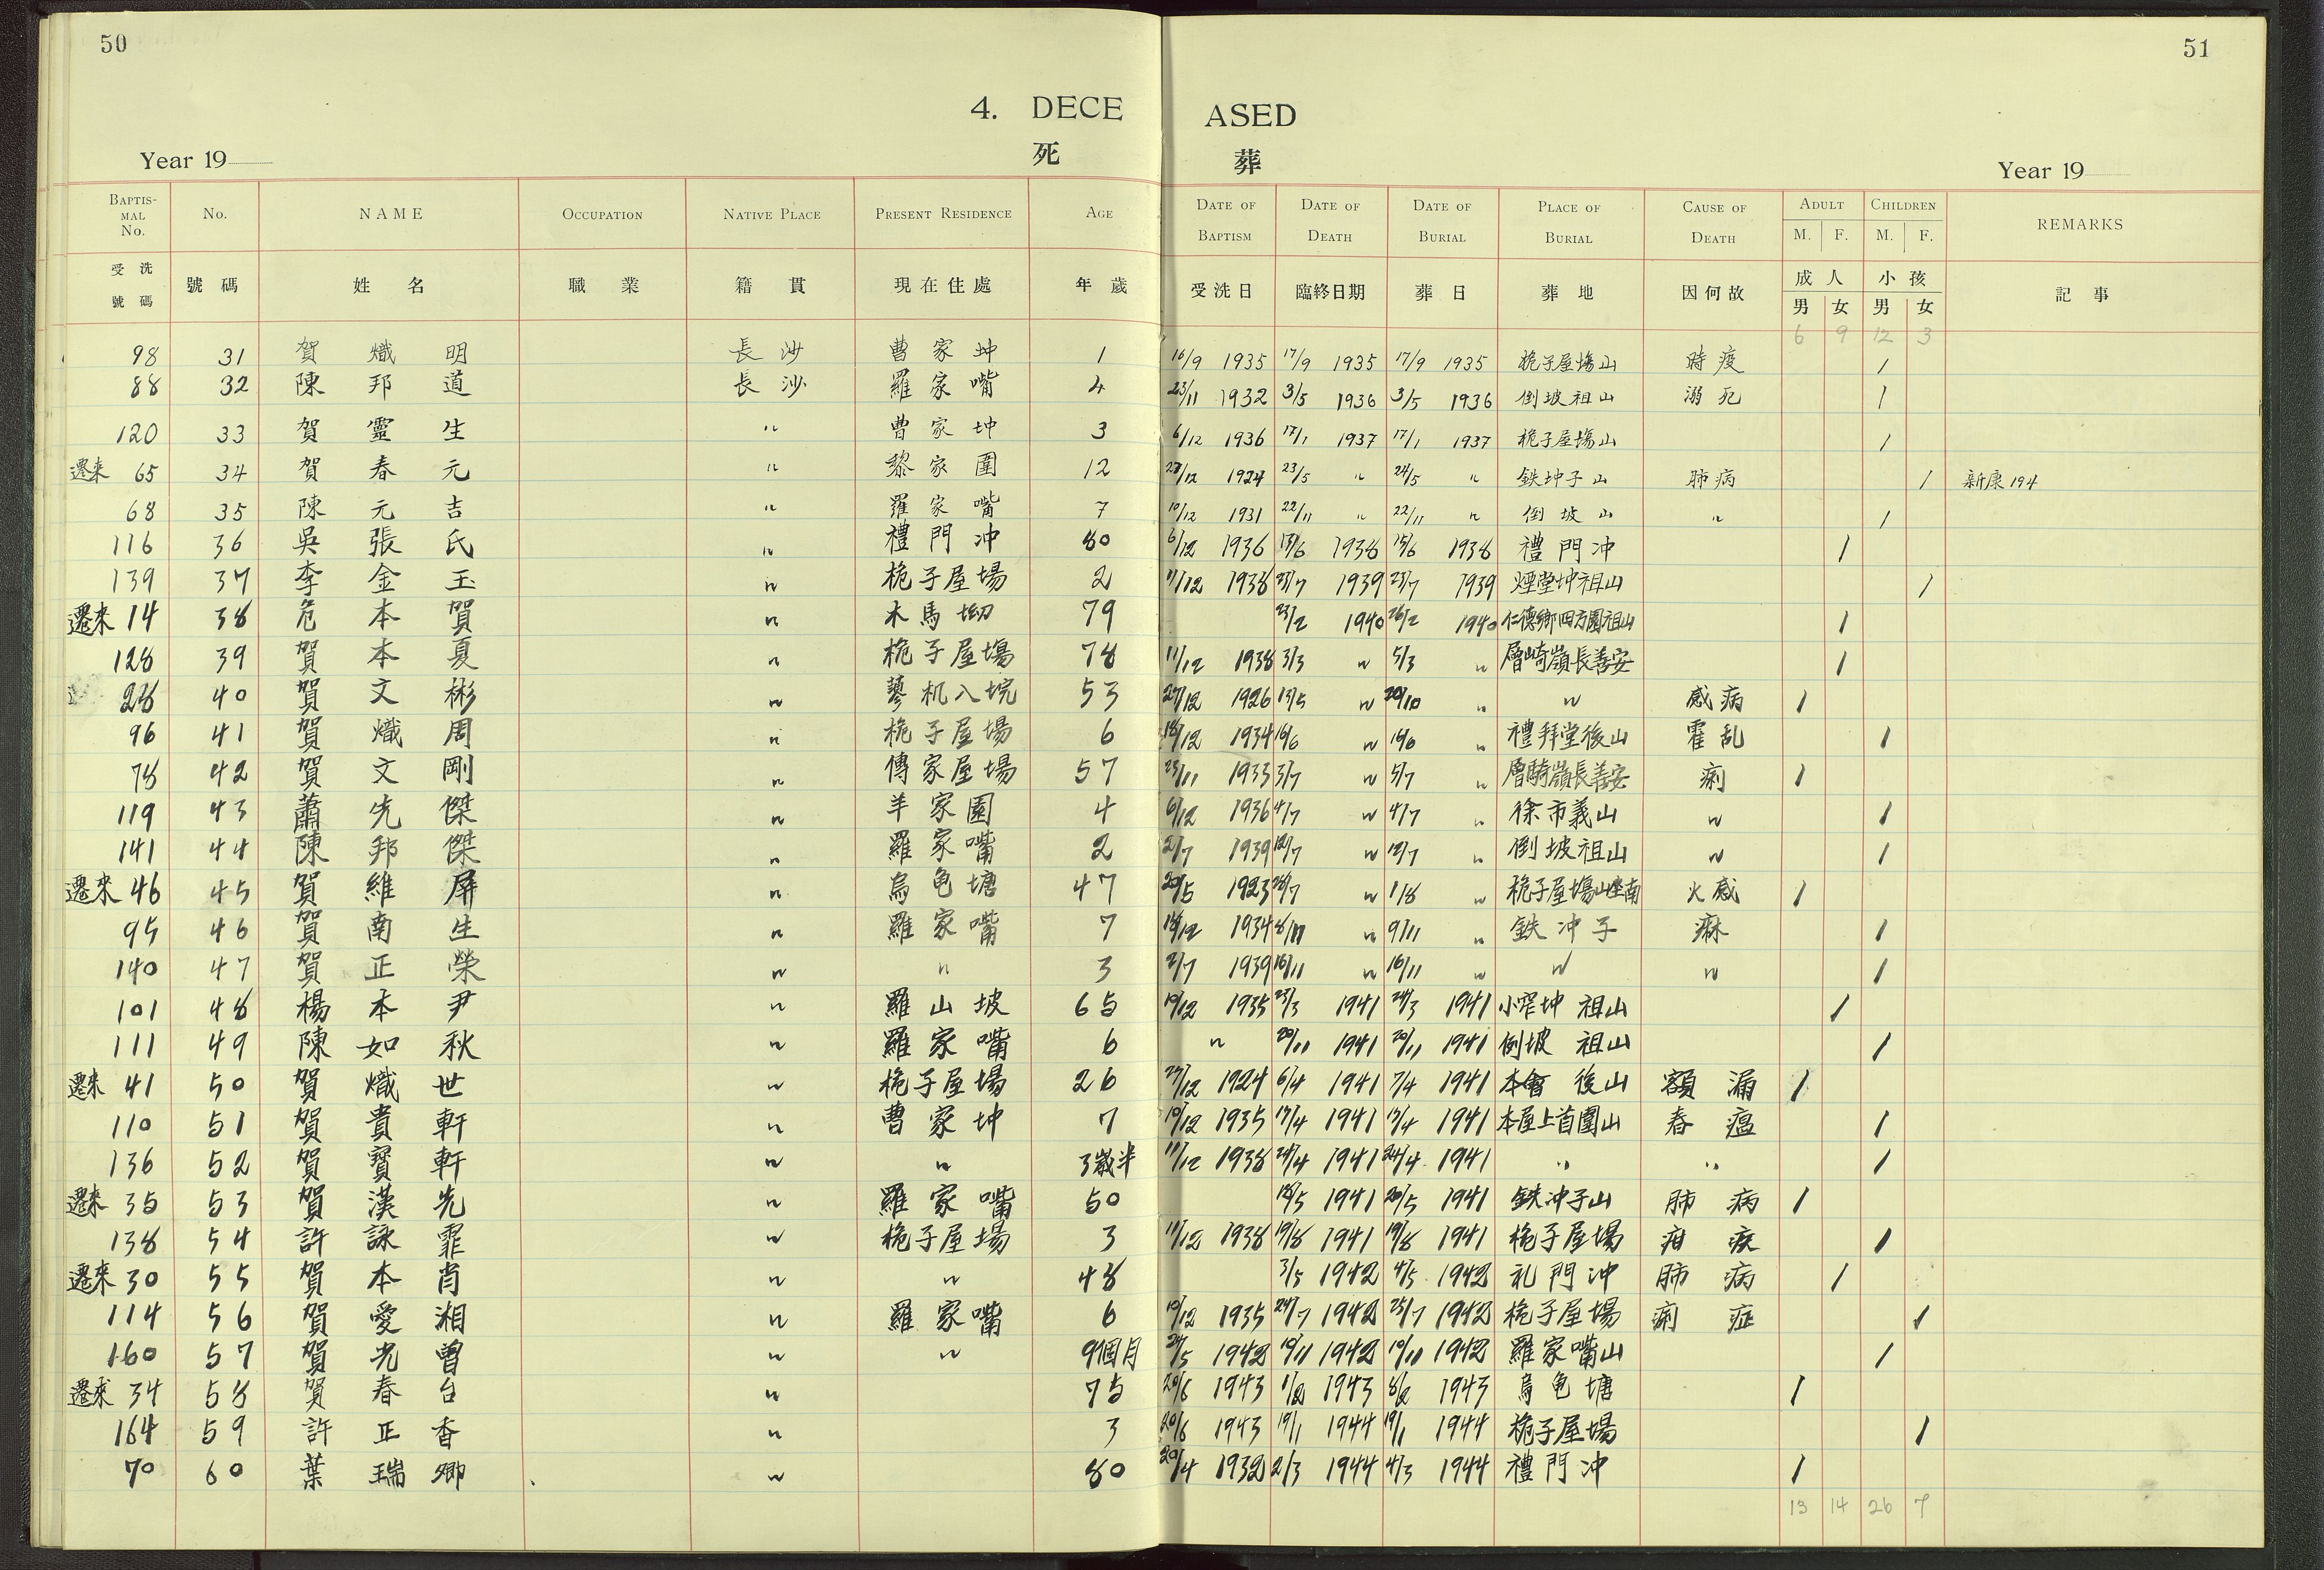 50
51
4. DECEASED
死 葬
Year 19
Year 19
BAPTISMAL No. No. NAME OCCUPATION NATIVE PLACE PRESENT RESIDENCE AGE DATE OF BAPTISM DATE OF DEATH DATE OF BURIAL PLACE OF BURIAL CAUSE OF DEATH ADULT M. F. CHILDREN M. F. REMARKS
受洗號碼 號碼 姓名 職業 籍貫 現在住處 年歲 受洗日 臨終日期 葬日 葬地 因何故 成人 男 女 小孩 男 女 記事
6 9 12 3
98 31 賀熾明 長沙 曹家坤 1 16/9 1935 17/9 1935 17/9 1935 桅子屋場山 時疫 1
88 32 陳邦道 長沙 羅家嘴 4 23/11 1932 3/5 1936 3/5 1936 倒坡祖山 溺死 1
120 33 賀靈生 〃 曹家坤 3 6/12 1936 17/1 1937 17/1 1937 桅子屋場山 1
遷來 65 34 賀春元 〃 黎家園 12 /12 1924 23/5 〃 24/5 〃 鉄坤子山 肺病 1 新康194
68 35 陳元吉 〃 羅家嘴 7 10/12 1931 22/11 〃 22/11 〃 倒坡山 〃 1
116 36 吳張氏 〃 禮門冲 80 6/12 1936 /6 1938 15/6 1938 禮門冲 1
139 37 李金玉 〃 桅子屋場 2 11/12 1938 23/7 1939 23/7 1939 煙堂坤祖山 1
遷來 14 38 危本賀 〃 木馬坳 79 23/2 1940 26/2 1940 仁德鄉四方園祖山 1
128 39 賀本夏 〃 桅子屋場 78 11/12 1938 3/3 〃 5/3 〃 層崎嶺長善安 1
28 40 賀文彬 〃 八垸 53 27/12 1926 13/5 〃 20/10 〃 〃 感病 1
96 41 賀熾周 〃 桅子屋場 6 /12 1934 /6 〃 /6 〃 禮拜堂後山 霍乱 1
78 42 賀文剛 〃 傅家屋場 57 23/11 1933 3/7 〃 5/7 〃 層騎嶺長善安 痢 1
119 43 蕭先傑 〃 羊家園 4 6/12 1936 4/7 〃 4/7 〃 徐市義山 〃 1
141 44 陳邦傑 〃 羅家嘴 2 2/7 1939 12/7 〃 12/7 〃 倒坡祖山 〃 1
遷來 46 45 賀維屏 〃 烏龟塘 47 20/5 1923 /7 〃 1/8 〃 桅子屋場山坐南 火感 1
95 46 賀南生 〃 羅家嘴 7 /12 1934 8/11 〃 9/11 〃 鉄冲子 痳 1
140 47 賀正榮 〃 〃 3 2/7 1939 16/11 〃 16/11 〃 〃 〃 1
101 48 楊本尹 〃 羅山坡 65 10/12 1935 23/3 1941 24/3 1941 小窄坤祖山 1
111 49 陳如秋 〃 羅家嘴 6 〃 20/11 1941 20/11 1941 倒坡祖山 1
遷來 41 50 賀熾世 〃 桅子屋場 26 27/12 1924 6/4 1941 7/4 1941 本會後山 額漏 1
110 51 賀貴軒 〃 曹家坤 7 10/12 1935 17/4 1941 17/4 1941 本屋上首園山 春瘟 1
136 52 賀寶軒 〃 〃 3歲半 11/12 1938 24/4 1941 24/4 1941 〃 〃 1
遷來 35 53 賀漢先 〃 羅家嘴 50 18/5 1941 20/5 1941 鉄冲子山 肺病 1
138 54 許詠霏 〃 桅子屋場 3 11/12 1938 19/8 1941 19/8 1941 桅子屋場 疳疾 1
遷來 30 55 賀本肖 〃 〃 48 3/5 1942 4/5 1942 礼門冲 肺病 1
114 56 賀愛湘 〃 羅家嘴 6 10/12 1935 24/7 1942 25/7 1942 桅子屋場 痢症 1
160 57 賀光曾 〃 〃 9個月 24/5 1942 10/11 1942 10/11 1942 羅家嘴山 1
遷來 34 58 賀春台 〃 75 20/6 1943 1/2 1943 8/2 1943 烏龟塘 1
164 59 許正香 〃 3 20/6 1943 19/1 1944 19/1 1944 桅子屋場 1
70 60 葉瑞卿 〃 80 20/4 1932 2/3 1944 4/3 1944 禮門冲 1
13 14 26 7